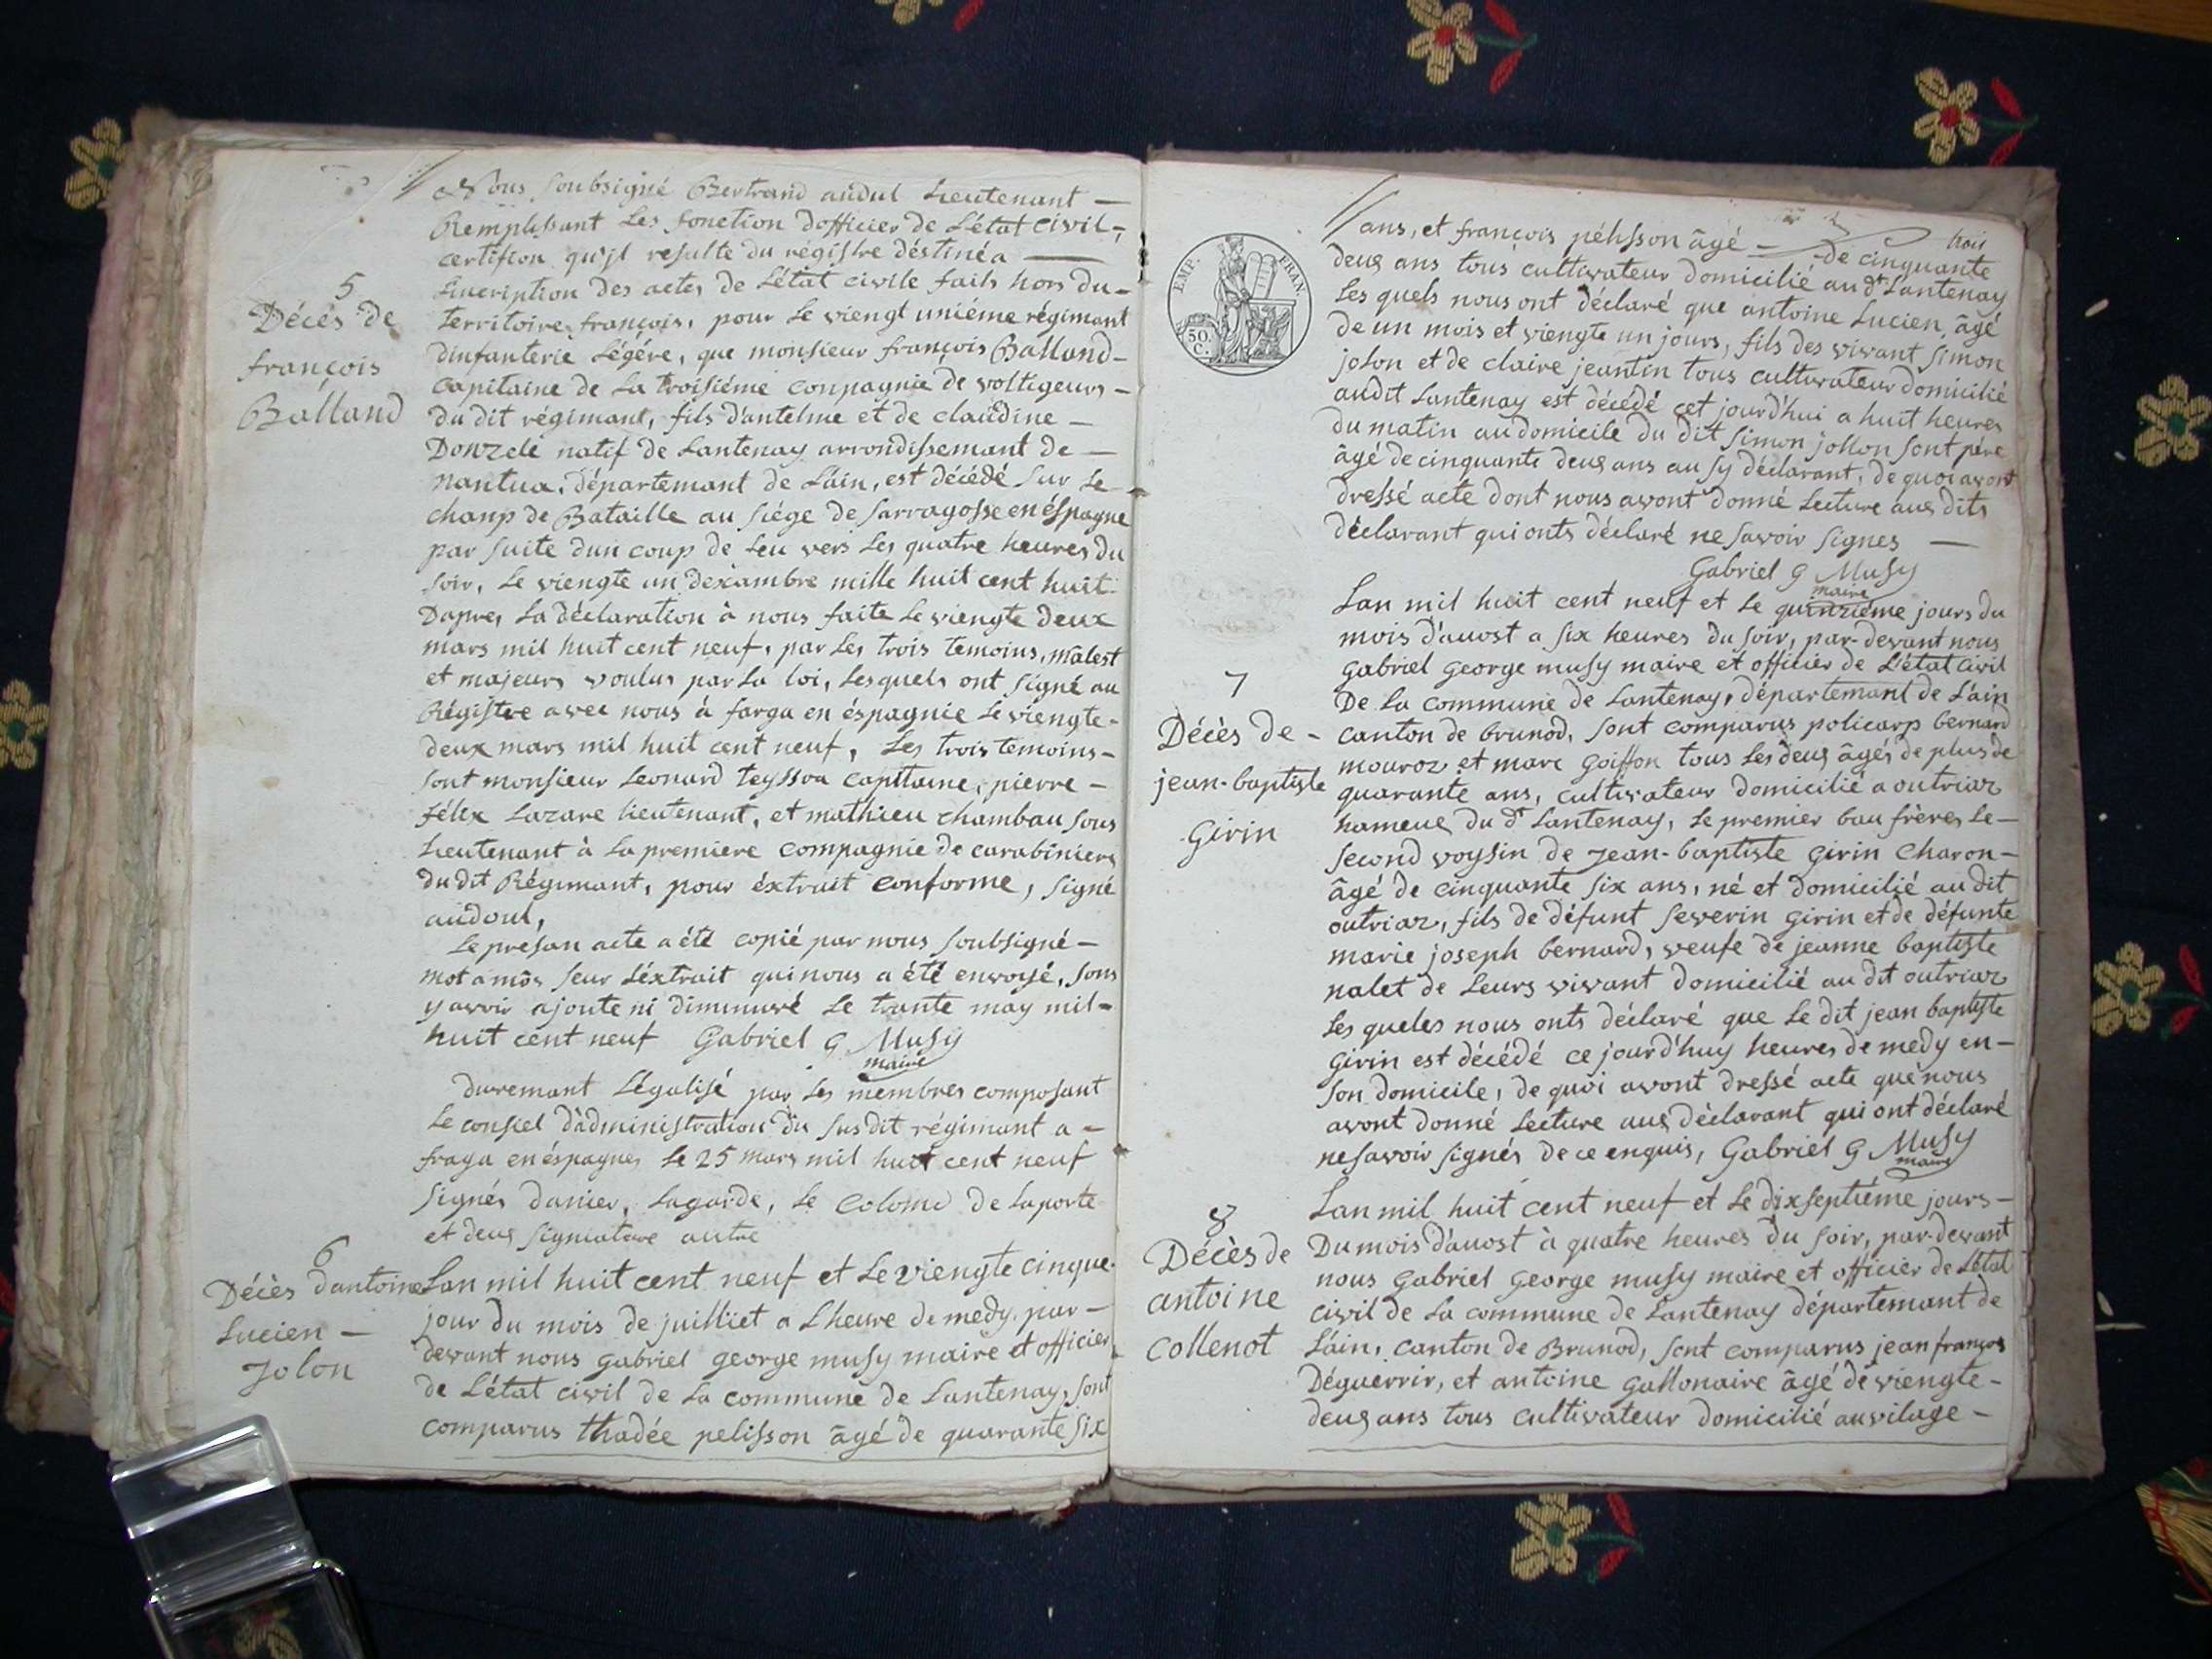 Nous Soubsigné Bertrand audul Lieutenant —
Remplissant Les fonction dofficier de L'état civil -,
certifion qu'jl resulte du régistre déstiné a —
5
Décès de
françois
Balland
Lincription des actes de L'état civile faits hors du -
territoire françois, pour Le viengt uniéme régimant
dinfanterie Légére, que monsieur françois Balland -
capitaine de La troisiéme conpagnie de voltigeurs -
du dit régimant, fils d'antelme et de claudine —
Donzele natif de Lantenay arrondissemant de —
nantua, département de L'ain, est décédé sur Le
chanp de Bataille au siége de Sarragosse en éspagne
par suite dun coup de feu vers Les quatre heures du
soir, Le viengte un dexambre mille huit cent huit.
Dapres La déclaration à nous faite Le viengte deux
mars mil huit cent neuf, par Les trois temoins, malest
et majeurs voulus par La loi, Lesquels ont signé au
Régistre avec nous à farga en éspagnie Le viengte -
deux mars mil huit cent neuf, Les trois temoins -
sont monsieur Leonard teyssou capitaine, pierre -
félix Lazare lieutenant, et mathieu chambau sous
Lieutenant à La premiere compagnie de carabiniers
du dit Régimant, pour éxtrait conforme, signé
audoul,
Le presan acte a été copié par nous soubsigné —
mot a môs seur L'éxtrait qui nous a été envoyé, sans
y avoir ajoute ni diminuvé Le trante may mil -
huit cent neuf Gabriel G Musy
maire
duremant Légalisé par Les membres composant
Le consiel d'administration du sus dit régimant a -
fraga en éspagnes Le 25 mars mil huit cent neuf
signés danier, Lagarde, Le colonel de Laporte
et deus signiature autre
6
Décès d'antoine
Lucien —
Jolon
Lan mil huit cent neuf et Le viengte cinque.
jour du mois de juilliet a L'heure de medy, par —
devant nous gabriel george musy maire et officier
de L'état civil de La commune de Lantenay, sont
comparus thadée pelisson âgé de quarante six
trois
ans, et françois pélisson âgé — de cinquante
deus ans tous cultivateur domicilié au dt Lantenay
Les quels nous ont déclaré que antoine Lucien, âgé
de un mois et viengte un jours, fils des vivant simon
jolon et de claire jeantin tous cultivateur domicilié
au dit Lantenay est décédé cet jourd'hui a huit heures
du matin au domicile du dit simon jollon sont père
âgé de cinquante deus ans au sy déclarant, de quoi avont
dressé acte dont nous avont donné Lecture aus dits
déclarant qui onts déclaré ne savoir signes —
Gabriel G Musy
maire
EMP. FRAN
50
C.
7
Décès de -
jean-baptiste
Girin
Lan mil huit cent neuf et Le quinziéme jours du
mois d'auost a six heures du soir, par-devant nous
gabriel george musy maire et officier de L'état civil
De La commune de Lantenay, départemant de L'ain
canton de brunod, sont comparus policarp bernard
mouroz et marc goiffon tous Les deus âgés de plus de
quarante ans, cultivateur domicilié a outriaz
hameus du dt Lantenay, Le premier bau frères Le —
second voysin de Jean-baptiste girin charon —
âgé de cinquante six ans, né et domicilié au dit
outriaz, fils de défunt severin girin et de défunte
marie joseph bernard, veufe de jeanne baptiste
nalet de Leurs vivant domicilié au dit outriaz
Les queles nous onts déclaré que Le dit jean baptiste
girin est décédé ce jourd'huy heures de medy en —
son domicile, de quoi avont dressé acte que nous
avont donné Lecture aus déclarant qui ont déclaré
ne savoir signés de ce enquis, Gabriel G Musy
maire
8
Décès de
antoine
collenot
Lan mil huit cent neuf et Le dixseptiéme jours —
Du mois d'auost à quatre heures du soir, par-devant
nous gabriel george musy maire et officier de L'état
civil de La commune de Lantenay départemant de
L'ain, canton de Brunod, sont comparus jean françois
Déguerrir, et antoine gallonaire âgé de viengte -
deus ans tous cultivateur domicilié au vilage —